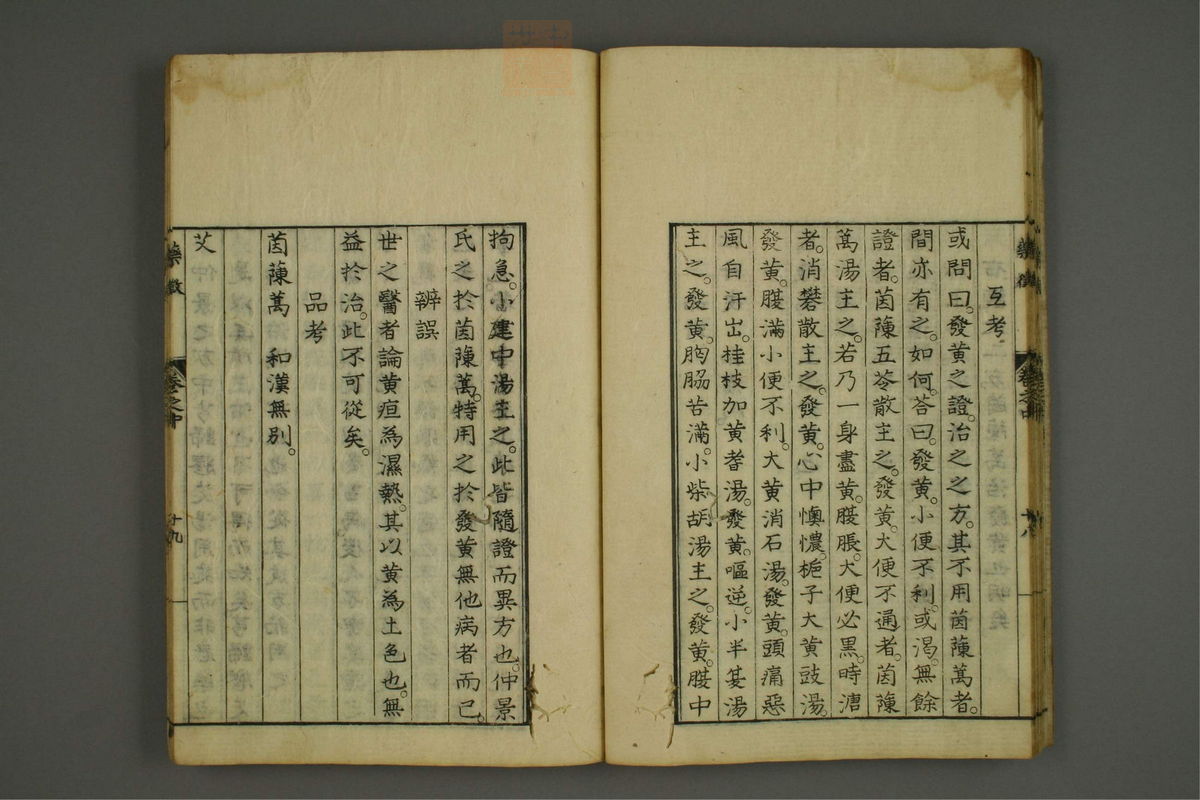 互考
或問曰。發黃之證。治之之方。其不用茵蔯蒿者。
間亦有之。如何。荅曰。發黃。小便不利。或渴。無餘
證者。茵蔯五苓散主之。發黃。大便不通者。茵蔯
蒿湯主之。若乃一身盡黃。腹脹。大便必黑。時溏
者。消礬散主之。發黃。心中懊憹。梔子大黃豉湯。
發黃。腹滿小便不利。大黃消石湯。發黃。頭痛惡
風自汗出。桂枝加黃耆湯。發黃。嘔逆。小半夏湯
主之。發黃。胸脇苦滿。小柴胡湯主之。發黃。腹中
藥徵
卷之中
十八
拘急。小建中湯主之。此皆隨證而異方也。仲景
氏之於茵蔯蒿。特用之於發黃無他病者而已。
辨誤
世之醫者論黃疸為濕熱。其以黃為土色也。無
益於治。此不可從矣。
品考
茵蔯蒿 和漢無別。
艾
藥徵
卷之中
十九